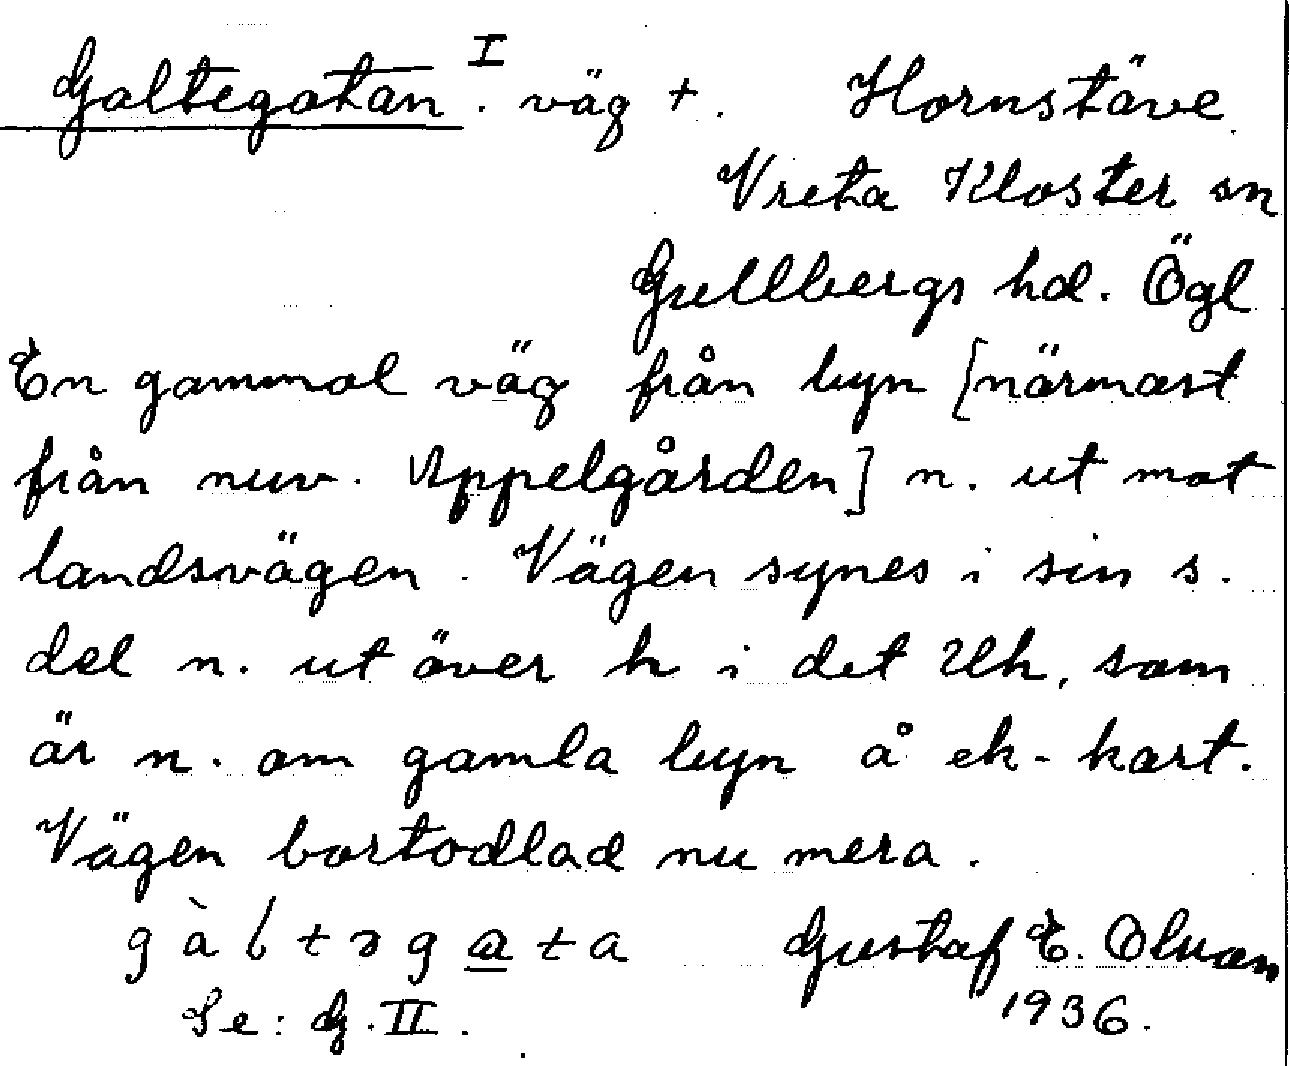 Galtegatan I. väg +. Hornstäve
Vreta Kloster sn
Gullbergs hd. Ögl
En gammal väg från byn [närmast
från nuv. Äppelgården] n. ut mot
landsvägen. Vägen synes i sin s.
del n. ut över h i det Uh, som
är n. om gamla byn å ek-kart.
Vägen bortodlad nu mera.
Gustaf E. Olson
1936.
Se: G. II.